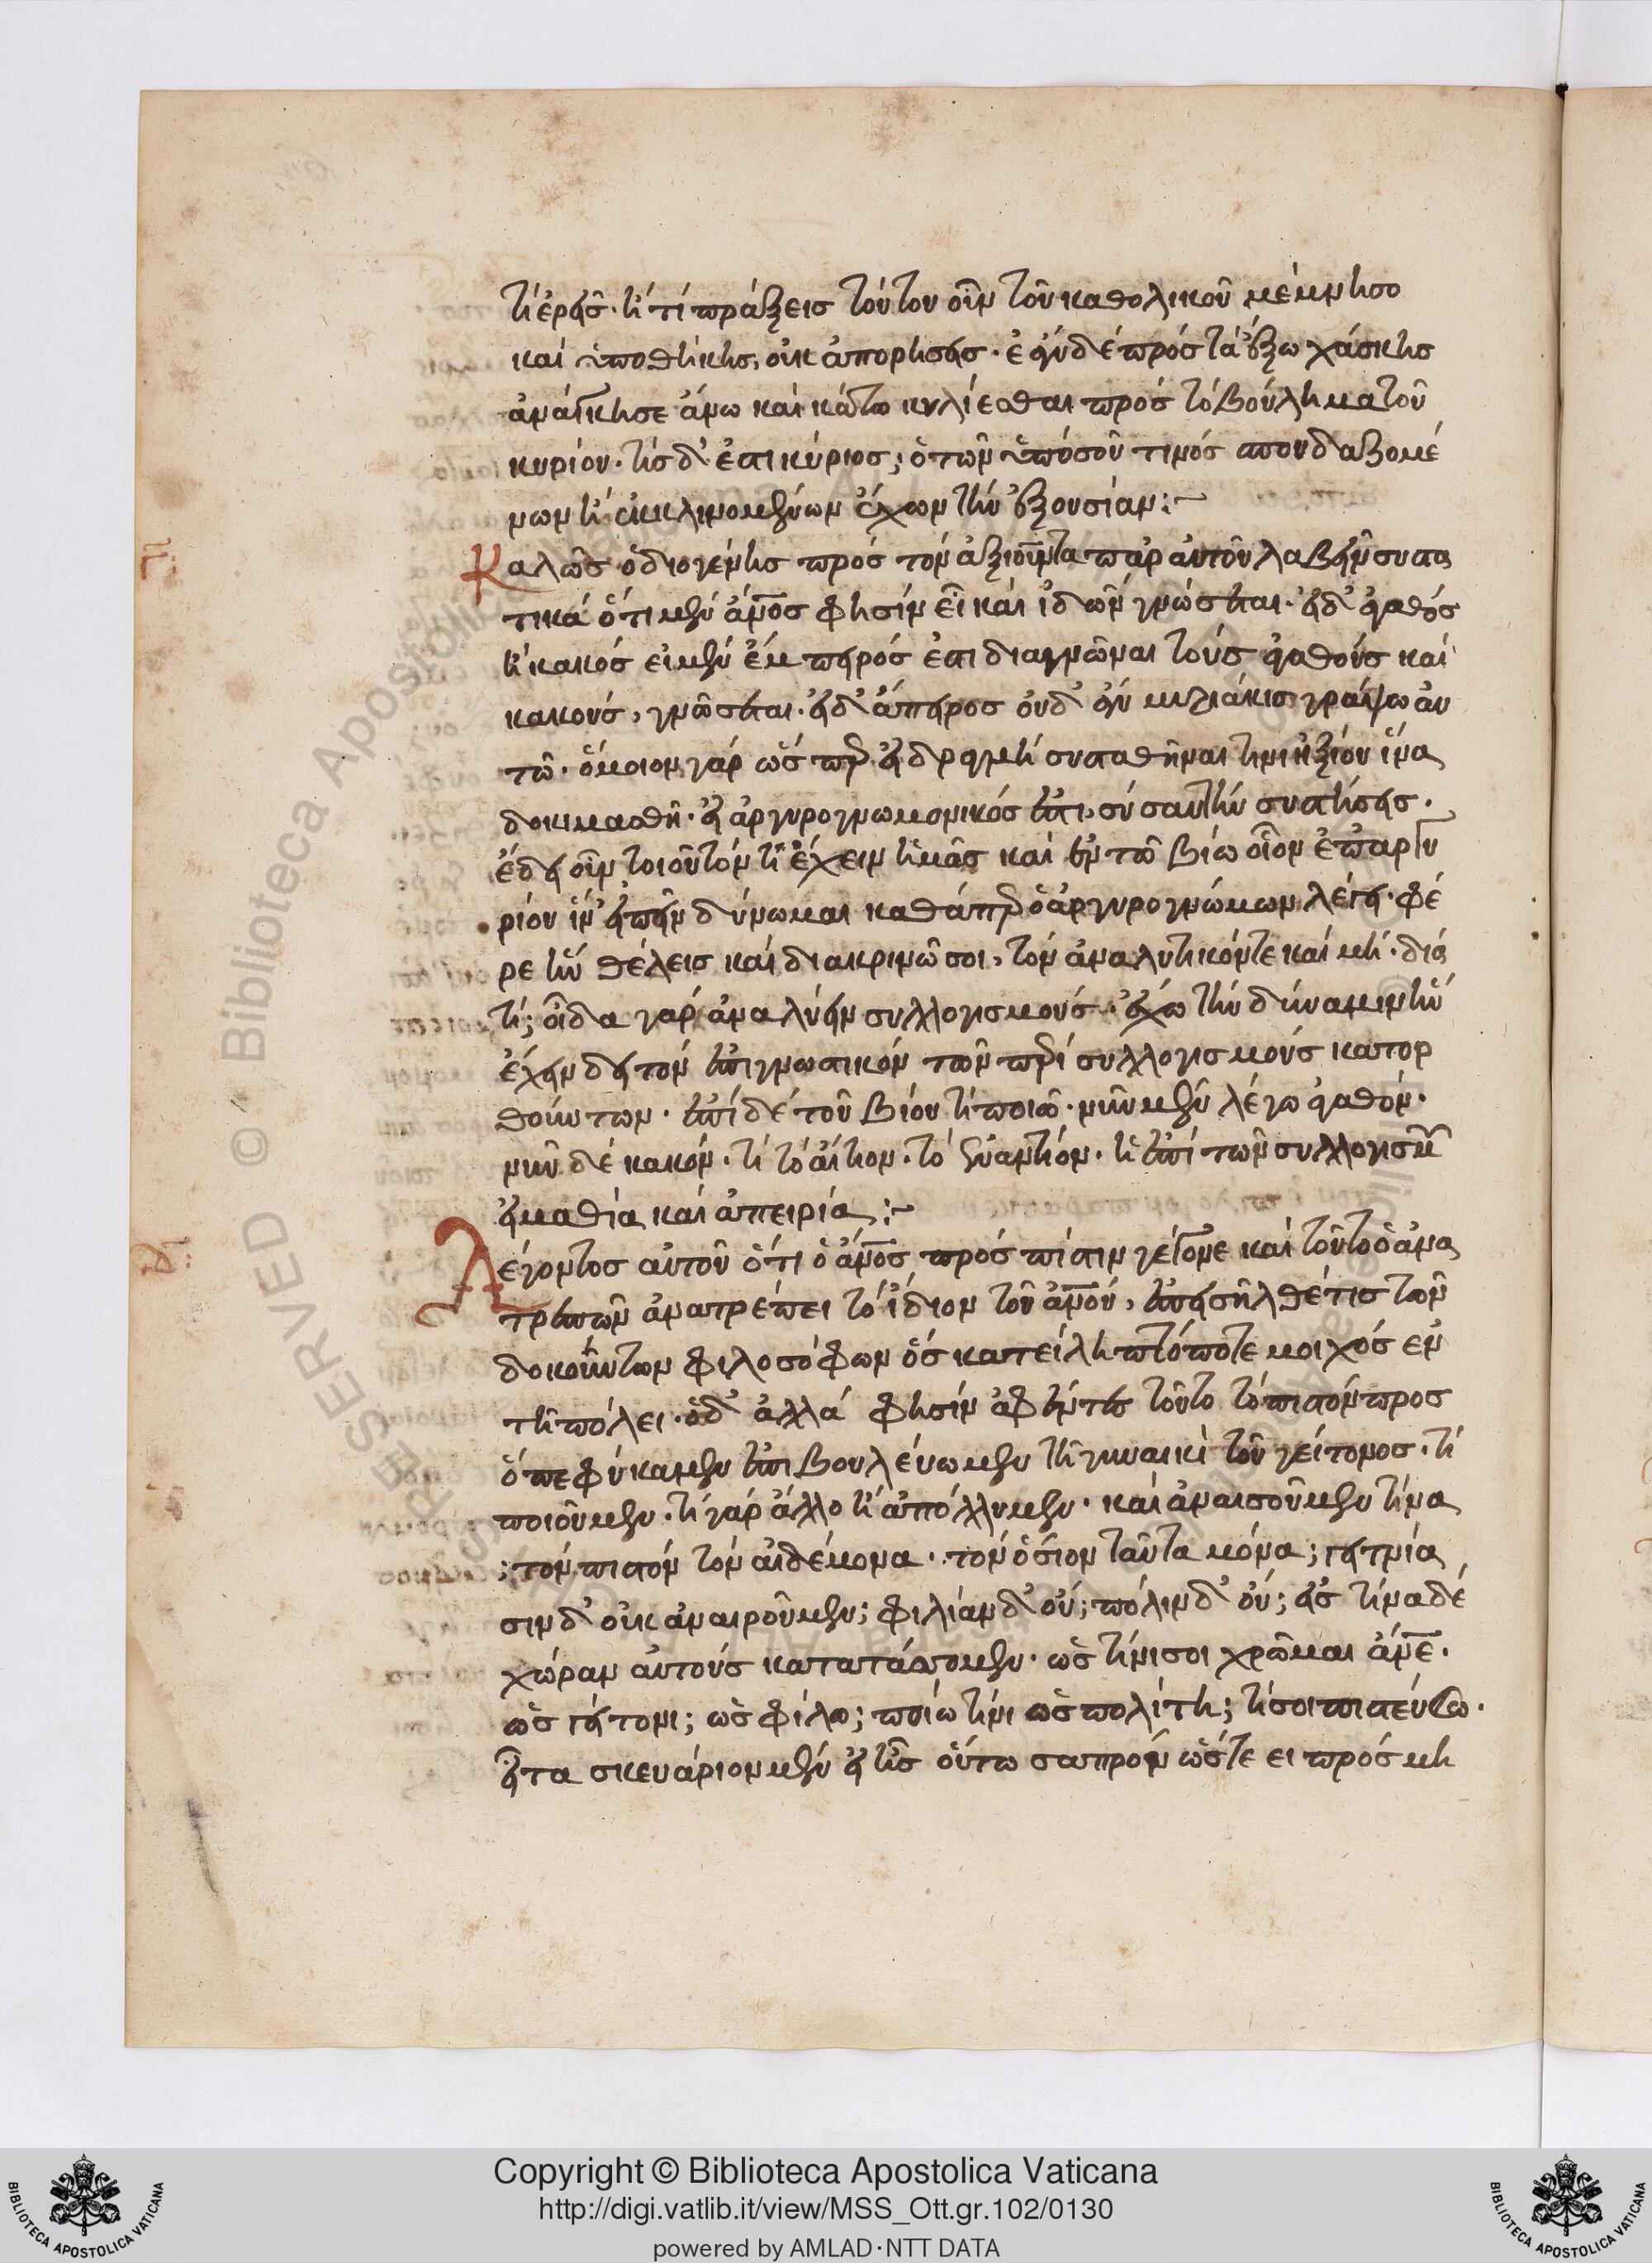 τί ἐρεῖς· ἢ τί πράξεις τούτου οὖν τοῦ καθολικοῦ μέμνησο
καὶ ὑποθήκης, οὐκ ἀπορήσεις· ἐὰν δὲ πρὸς τὰ ἔξω χάσκῃς
ἀνάγκη σε ἄνω καὶ κάτω κυλίεσθαι πρὸς τὸ βούλημα τοῦ
κυρίου· τίς δ' ἐστι κύριος; ὁ τῶν ὑπό σοῦ τινός σπουδαζομέ
νων ἢ ἐκκλινομένων ἔχων τὴν ἐξουσίαν:~
Γ:
Καλῶς ὁ διογένης πρὸς τὸν ἀξιοῦντα παρ αὐτοῦ λαβεῖν συστα
τικά ὅτι μὲν ἄνος φησίν εἶ καὶ ἰδὼν γνώσεται· εἰ δ' ἀγαθός
ἢ κακός εἰ μὲν ἔμπειρός ἐστι διαγνῶναι τοὺς ἀγαθοὺς καὶ
κακούς, γνώσεται· εἰ δ' ἄπειρος οὐδ' ἂν μυριάκις γράψω αὐ
τῶ· ὅμοιον γὰρ ὥσπερ εἰ δραχμή συσταθῆναι τινι ἠξίου ἵνα
δοκιμασθῆ· εἰ ἀργυρογνωμονικός ἐστι, σύ σαυτὴν συστήσεις·
ἔδει οὖν τοιοῦτόν τι ἔχειν ἡμᾶς καὶ ἐν τῶ βίω οἷον ἐπ ἀργυ
ρίου ἵν' εἰπεῖν δύνωμαι καθάπερ ὁ ἀργυρογνώμων λέγει· φέ
ρε ἣν θέλεις καὶ διακρινῶ σοι, τὸν ἀναλυτικόν τε καὶ μή· διὰ
τί; οἶδα γὰρ ἀναλύειν συλλογισμούς· ἔχω τὴν δύναμιν ἣν
ἔχειν δεῖ τὸν ἐπιγνωστικόν τῶν περὶ συλλογισμούς κατορ
θούντων· ἐπὶ δὲ τοῦ βίου τί ποιῶ· νῦν μὲν λέγω ἀγαθόν·
νῦν δὲ κακόν· τί τὸ αἴτιον· τὸ ἐναντίον· ἢ ἐπὶ τῶν συλλογισμῶν
ἀμαθία καὶ ἀπειρία:~
Δ:
Λέγοντος αὐτοῦ ὅτι ὁ ἄνος πρὸς πίστιν γέγονε καὶ τοῦτο ὁ ἀνα
τρέπων ἀνατρέπει τὸ ἴδιον τοῦ ἀνου, ἐπεισῆλθέ τις τῶν
δοκούντων φιλοσόφων ὃς κατείληπτό ποτε μοιχός ἐν
τῆ πόλει· ὁ δ' ἀλλά φησίν ἀφέντες τοῦτο τὸ πιστὸν πρὸς
ὃ πεφύκαμεν ἐπιβουλεύωμεν τῆ γυναικὶ τοῦ γείτονος· τί
ποιοῦμεν· τί γὰρ ἄλλο ἢ ἀπόλλυμεν· καὶ ἀναιροῦμεν τίνα
; τὸν πιστὸν τὸν αἰδήμονα· τὸν ὅσιον ταῦτα μόνα; γειτνία
σιν δ' οὐκ ἀναιροῦμεν; φιλίαν δ' οὔ; πόλιν δ' οὔ; εἰς τίνα δὲ
χώραν αὐτοὺς κατατάσσομεν· ὡς τίνι σοι χρῶμαι ἄνε·
ὡς γείτονι; ὡς φίλω; ποίω τινι ὡς πολίτη; τί σοι πιστεύσω·
εἶτα σκευάριον μὲν εἰ ἦς οὕτω σαπρόν ὥστε ει πρὸς μη
Copyright © Biblioteca Apostolica Vaticana
http://digi.vatlib.it/view/MSS_Ott.gr.102/0130
powered by AMLAD·NTT DATA